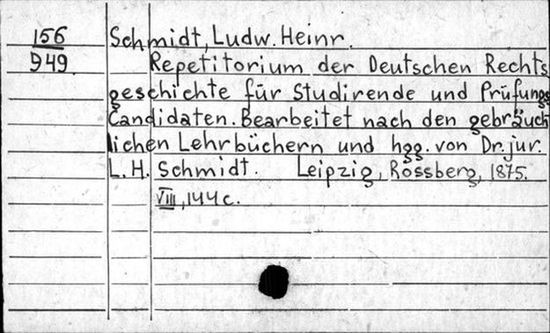 156
949
Schmidt, Ludw. Heinr.
Repetitorium der Deutschen Rechts
geschichte für Studirende und Prüfungs
Candidaten. Bearbeitet nach den gebräuch
lichen Lehrbüchern und hgg. von Dr. jur.
L. H. Schmidt. Leipzig, Rossberg, 1875.
VIII, 144 c.